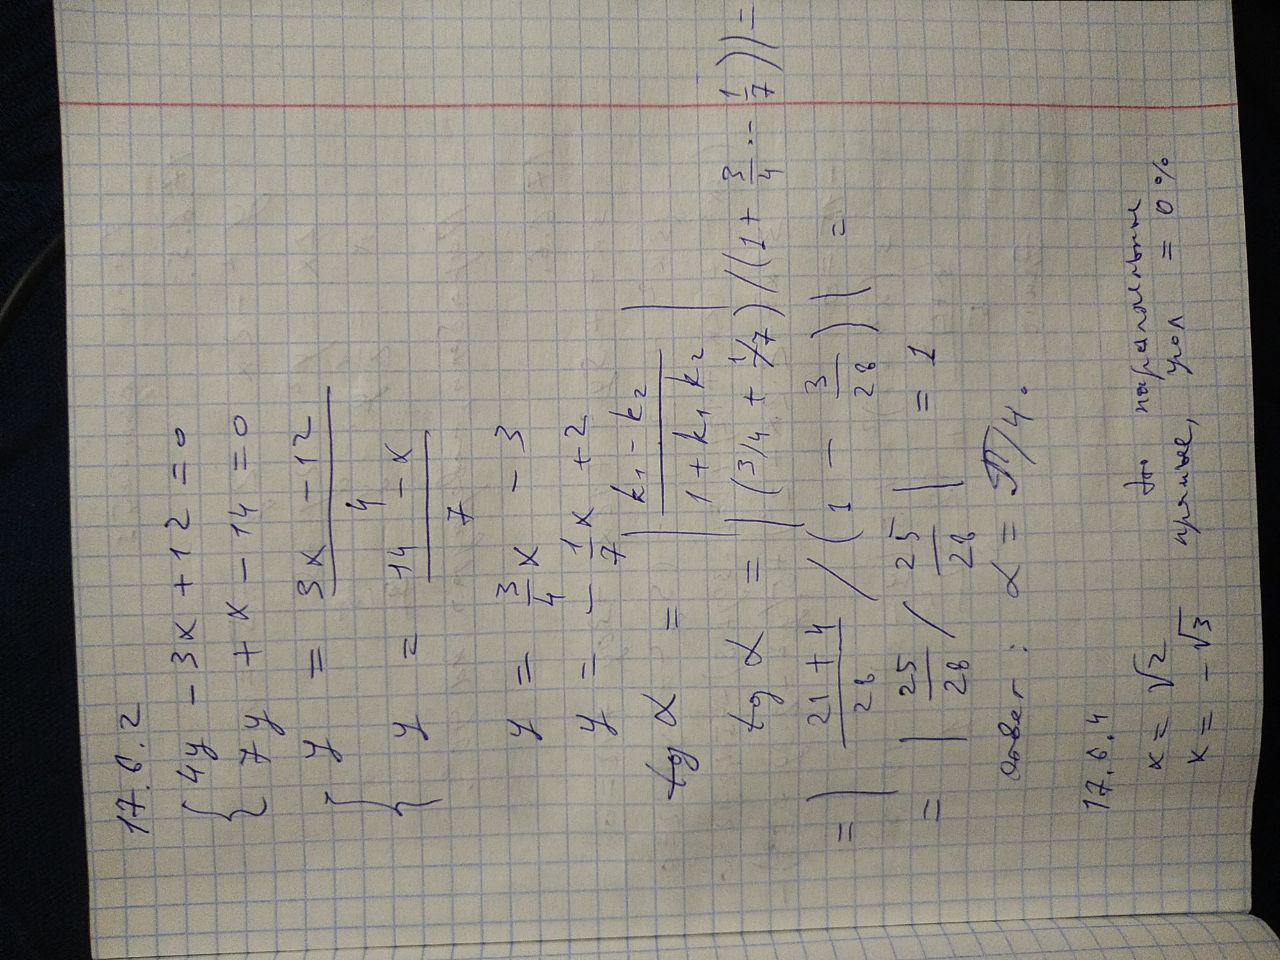 17.6.2
{ 4y - 3x + 12 = 0
7y + x - 14 = 0
{ y = (3x - 12)/4
y = (14 - x)/7
y = 3/4 x - 3
y = - 1/7 x + 2
tg α = | (k₁ - k₂)/(1 + k₁ k₂) |
tg α = | (3/4 + 1/7) / (1 + 3/4 · - 1/7)) | =
= | (21 + 4)/28 / (1 - 3/28) | =
= | 25/28 / 25/28 | = 1
Ответ: α = π/4.
17.6.4
x = √2 это параллельные
x = - √3 прямые, угол = 0%